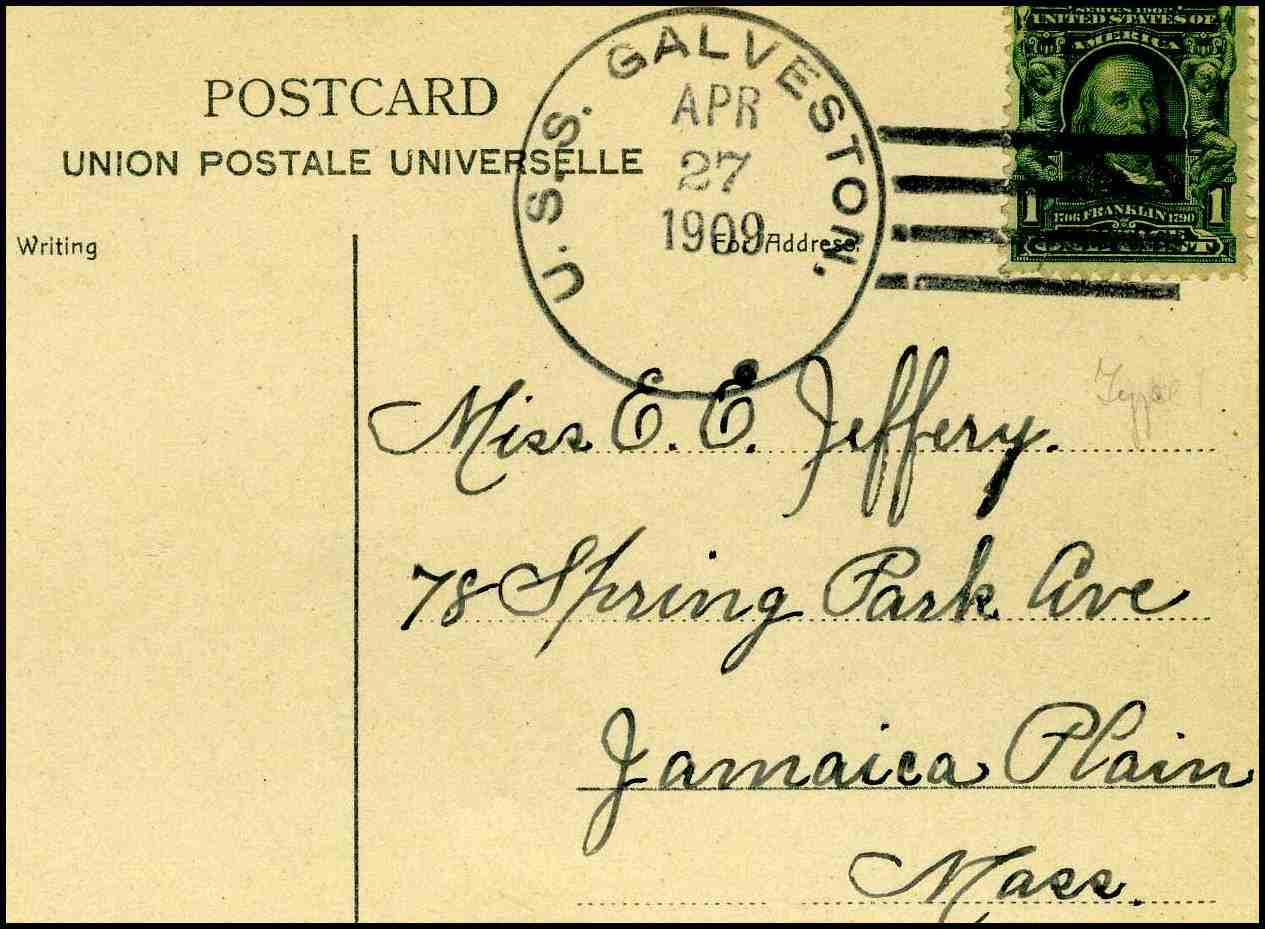 POSTCARD
UNION POSTALE UNIVERSELLE
Writing
For Address.
U.S.S. GALVESTON.
APR
27
1909
SERIES 1902
UNITED STATES OF
AMERICA
1706 FRANKLIN 1790
1 1
Miss E. E. Jeffery.
78 Spring Park Ave
Jamaica Plain
Mass.